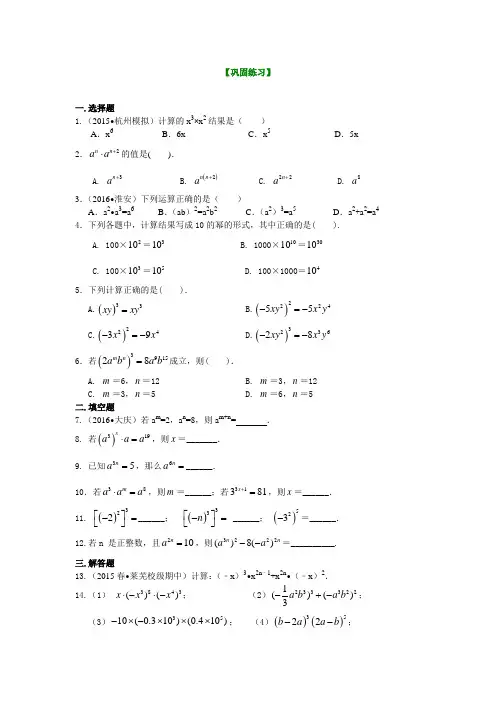 【巩固练习】
一.选择题
1.(2015•杭州模拟)计算的x³×x²结果是( )
A.x⁶ B.6x C.x⁵ D.5x
2.aⁿ·aⁿ⁺²的值是( ).
A. aⁿ⁺³ B. a^{n(n+2)} C. a²ⁿ⁺² D. a⁸
3.(2016•淮安)下列运算正确的是( )
A.a²•a³=a⁶ B.(ab)²=a²b² C.(a²)³=a⁵ D.a²+a²=a⁴
4.下列各题中,计算结果写成10的幂的形式,其中正确的是( ).
A. 100×10²=10³ B. 1000×10¹⁰=10³⁰
C. 100×10³=10⁵ D. 100×1000=10⁴
5.下列计算正确的是( ).
A.(xy)³=xy³ B.(-5xy²)²=-5x²y⁴
C.(-3x²)²=-9x⁴ D.(-2xy²)³=-8x³y⁶
6.若(2aᵐbⁿ)³=8a⁹b¹⁵成立,则( ).
A. m=6,n=12 B. m=3,n=12
C. m=3,n=5 D. m=6,n=5
二.填空题
7.(2016•大庆)若aᵐ=2,aⁿ=8,则aᵐ⁺ⁿ= .
8. 若(a³)ˣ·a=a¹⁹,则x=_______.
9. 已知a³ⁿ=5,那么a⁶ⁿ=______.
10.若a³·aᵐ=a⁸,则m=______;若3³ˣ⁺¹=81,则x=______.
11. [(-2)²]³=______; [(-n)³]³= ______; (-3²)⁵=______.
12.若n 是正整数,且a²ⁿ=10,则(a³ⁿ)²-8(-a²)²ⁿ=__________.
三.解答题
13.(2015春•莱芜校级期中)计算:(﹣x)³•x²ⁿ﹣¹+x²ⁿ•(﹣x)².
14.(1) x·(-x³)⁸·(-x⁴)³; (2)(-1/3a²b³)³+(-a³b²)²;
(3)-10×(-0.3×10³)×(0.4×10⁵); (4)(b-2a)³(2a-b)⁵;